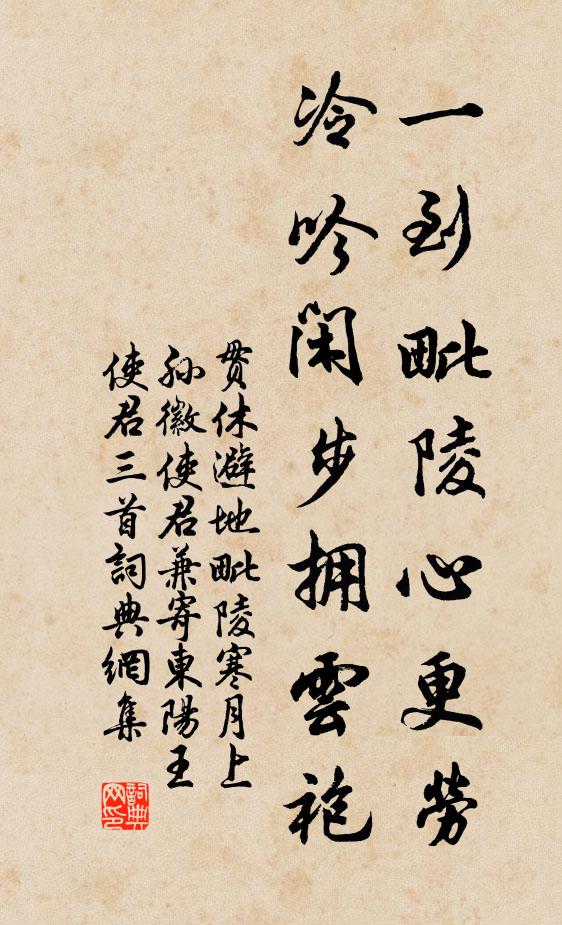 一到毗陵心更勞
冷吟閑步拥雲袍
贯休避地毗陵寒月上
孙徽使君兼寄東陽王
使君三首詞典網集
詞典网印